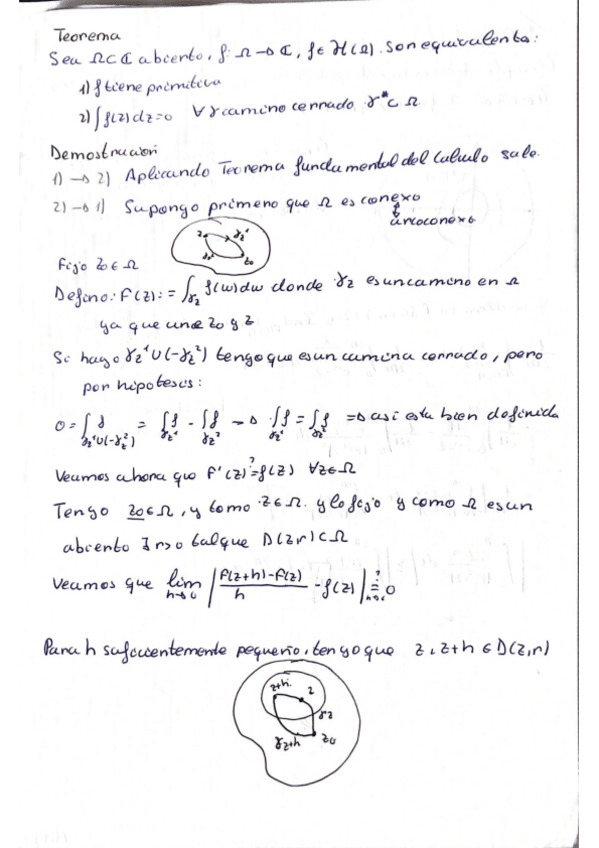 Teorema
Sea Ω⊂ℂ abierto, f: Ω→ℂ, f∈ℋ(Ω). Son equivalentes:
1) f tiene primitiva
2) ∫f(z)dz=0 ∀γ camino cerrado γ*⊂Ω
Demostracion
1) → 2) Aplicando Teorema fundamental del Calculo sale.
2) → 1) Supongo primero que Ω es conexo
⇕
arcoconexo
z γz¹
γz² z0
Fijo z0∈Ω
Defino: F(z):=∫γz f(w)dw donde γz es un camino en Ω
ya que une z0 y z
Si hago γz¹∪(-γz²) tengo que es un camino cerrado, pero
por hipotesis:
0=∫γz¹∪(-γz²) f = ∫γz¹ f - ∫γz² f → ∫γz¹ f = ∫γz² f ⇒ asi esta bien definida
Veamos ahora que F'(z)≟f(z) ∀z∈Ω
Tengo z0∈Ω, y tomo z∈Ω y lo fijo y como Ω es un
abierto ∃ r>0 tal que D(z,r)⊂Ω
Veamos que lim h→0 |F(z+h)-F(z)/h - f(z)| ≟ h→0 0
Para h suficientemente pequeño, tengo que z, z+h∈D(z,r)
z+h z
γz
γz+h z0